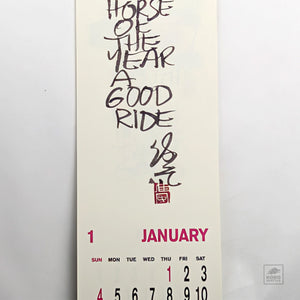 HORSE
OF
THE
YEAR
A
GOOD
RIDE
1 JANUARY
SUN MON TUE WED THU FRI SAT
1 2 3
4 5 6 7 8 9 10